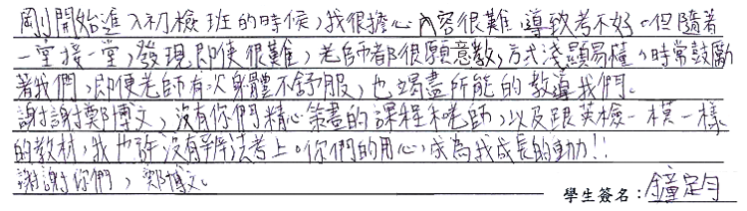 剛開始進入初檢班的時候，我很擔心內容很難，導致考不好。但隨著
一堂接一堂，發現即使很難，老師都很願意教，方式淺顯易懂，時常鼓勵
著我們，即便老師有次身體不舒服，也竭盡所能的教導我們。
謝謝鄭博文，沒有你們精心策畫的課程和老師，以及跟英檢一模一樣
的教材，我也許沒有辦法考上。你們的用心，成為我成長的動力!!
謝謝你們，鄭博文。
學生簽名：鐘定勻